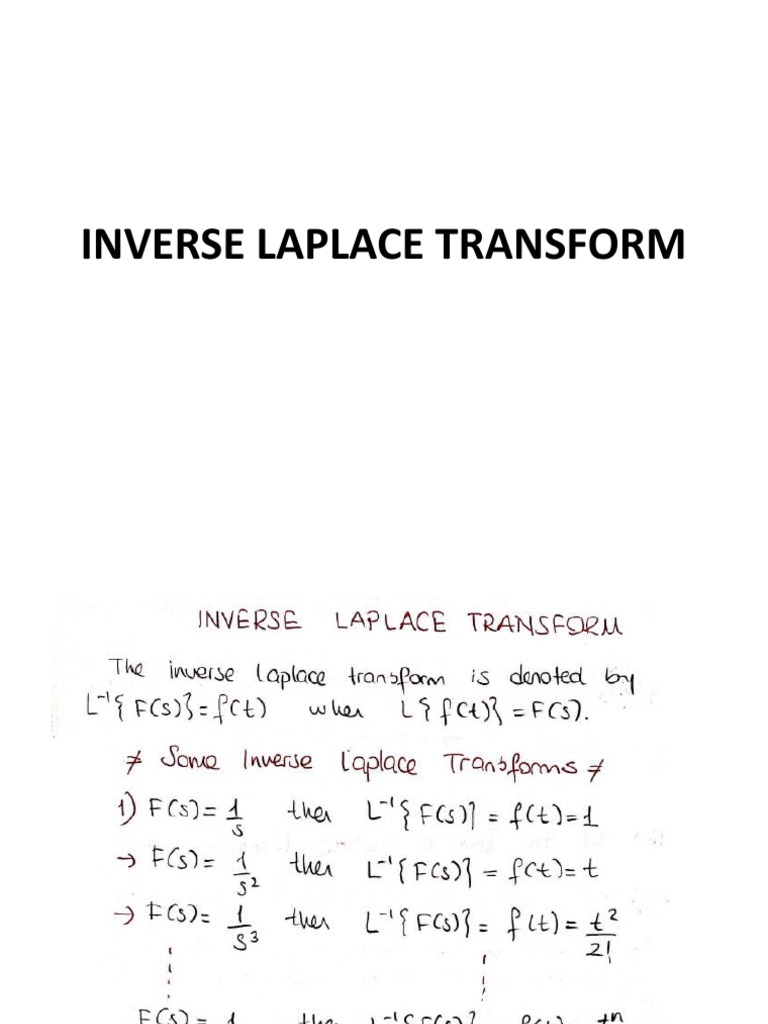 INVERSE LAPLACE TRANSFORM
INVERSE LAPLACE TRANSFORM
The inverse laplace transform is denoted by
L⁻¹{F(s)}=f(t) when L{f(t)}=F(s).
≠ Some Inverse Laplace Transforms ≠
1) F(s)= 1/s then L⁻¹{F(s)} = f(t)=1
→ F(s)= 1/s² then L⁻¹{F(s)} = f(t)=t
→ F(s)= 1/s³ then L⁻¹{F(s)} = f(t) = t²/2!
F(s) = 1 then L⁻¹{F(s)} f(t) tⁿ